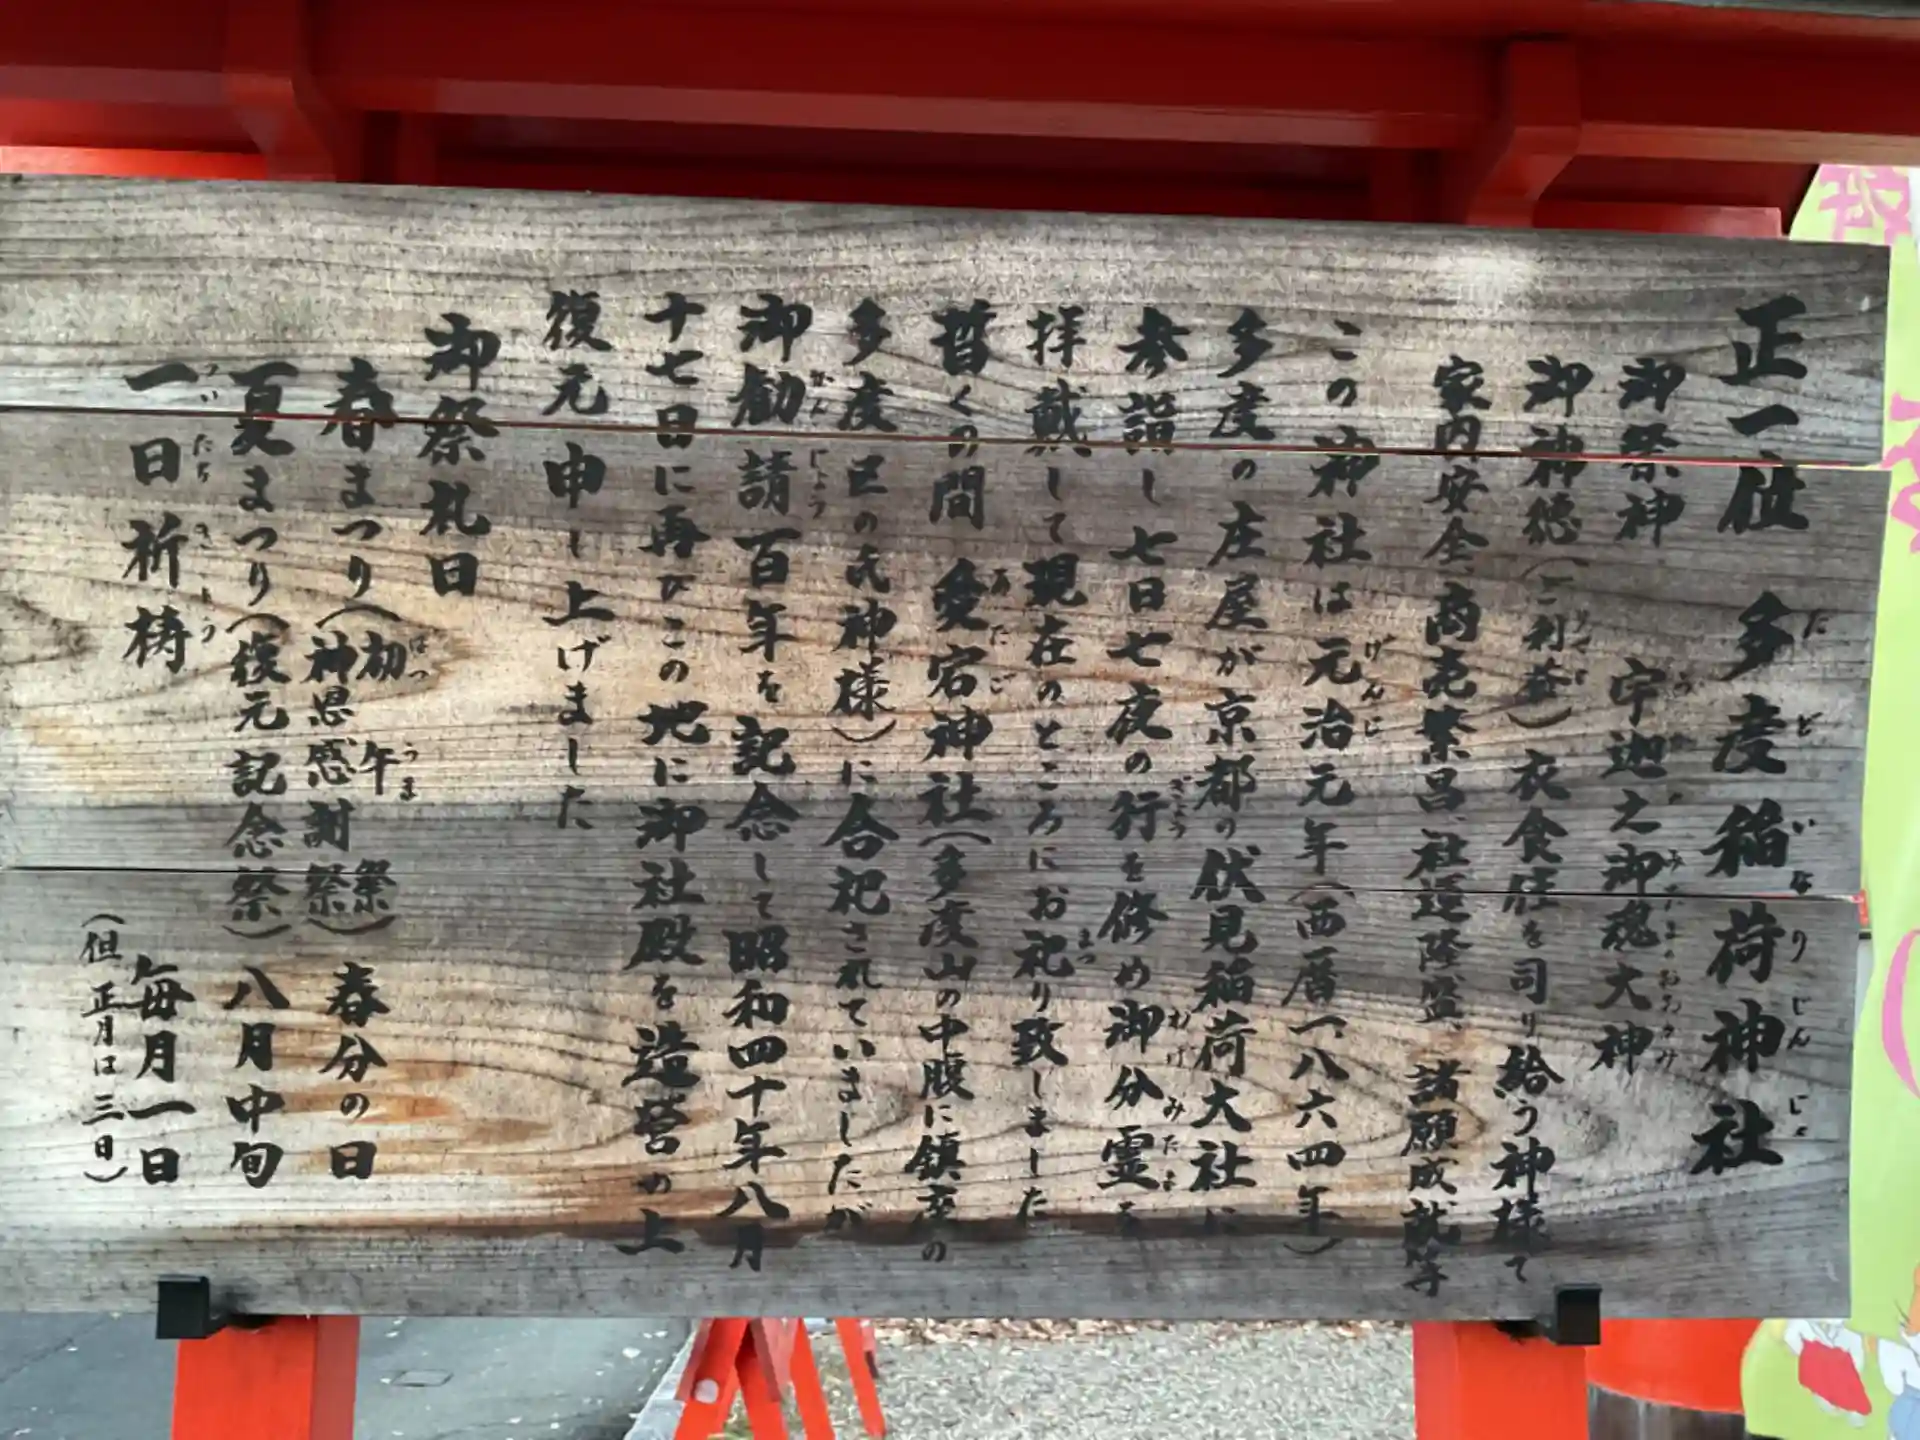 正一位 多度稲荷神社
御祭神 宇迦之御魂大神
御神徳(ご利益)衣食住を司り給う神様で
家内安全、商売繁昌、社運隆盛、諸願成就等
この神社は元治元年(西暦一八六四年)
多度の庄屋が京都の伏見稲荷大社に
参詣し七日七夜の行を修め御分霊を
拝戴して現在のところにお祀り致しました
暫くの間 愛宕神社(多度山の中腹に鎮座の
多度区の氏神様)に合祀されていましたが
御勧請百年を記念して昭和四十年八月
十七日に再びこの地に御社殿を造営め上
復元申し上げました
御祭礼日
春まつり(初午祭 神恩感謝祭) 春分の日
夏まつり(復元記念祭) 八月中旬
一日祈祷 毎月一日
(但 正月は三日)